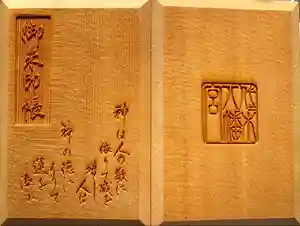 御朱印帳
神は人の敬に
依りて威を
増し人は
神の徳に
よりて
運を
添ふ